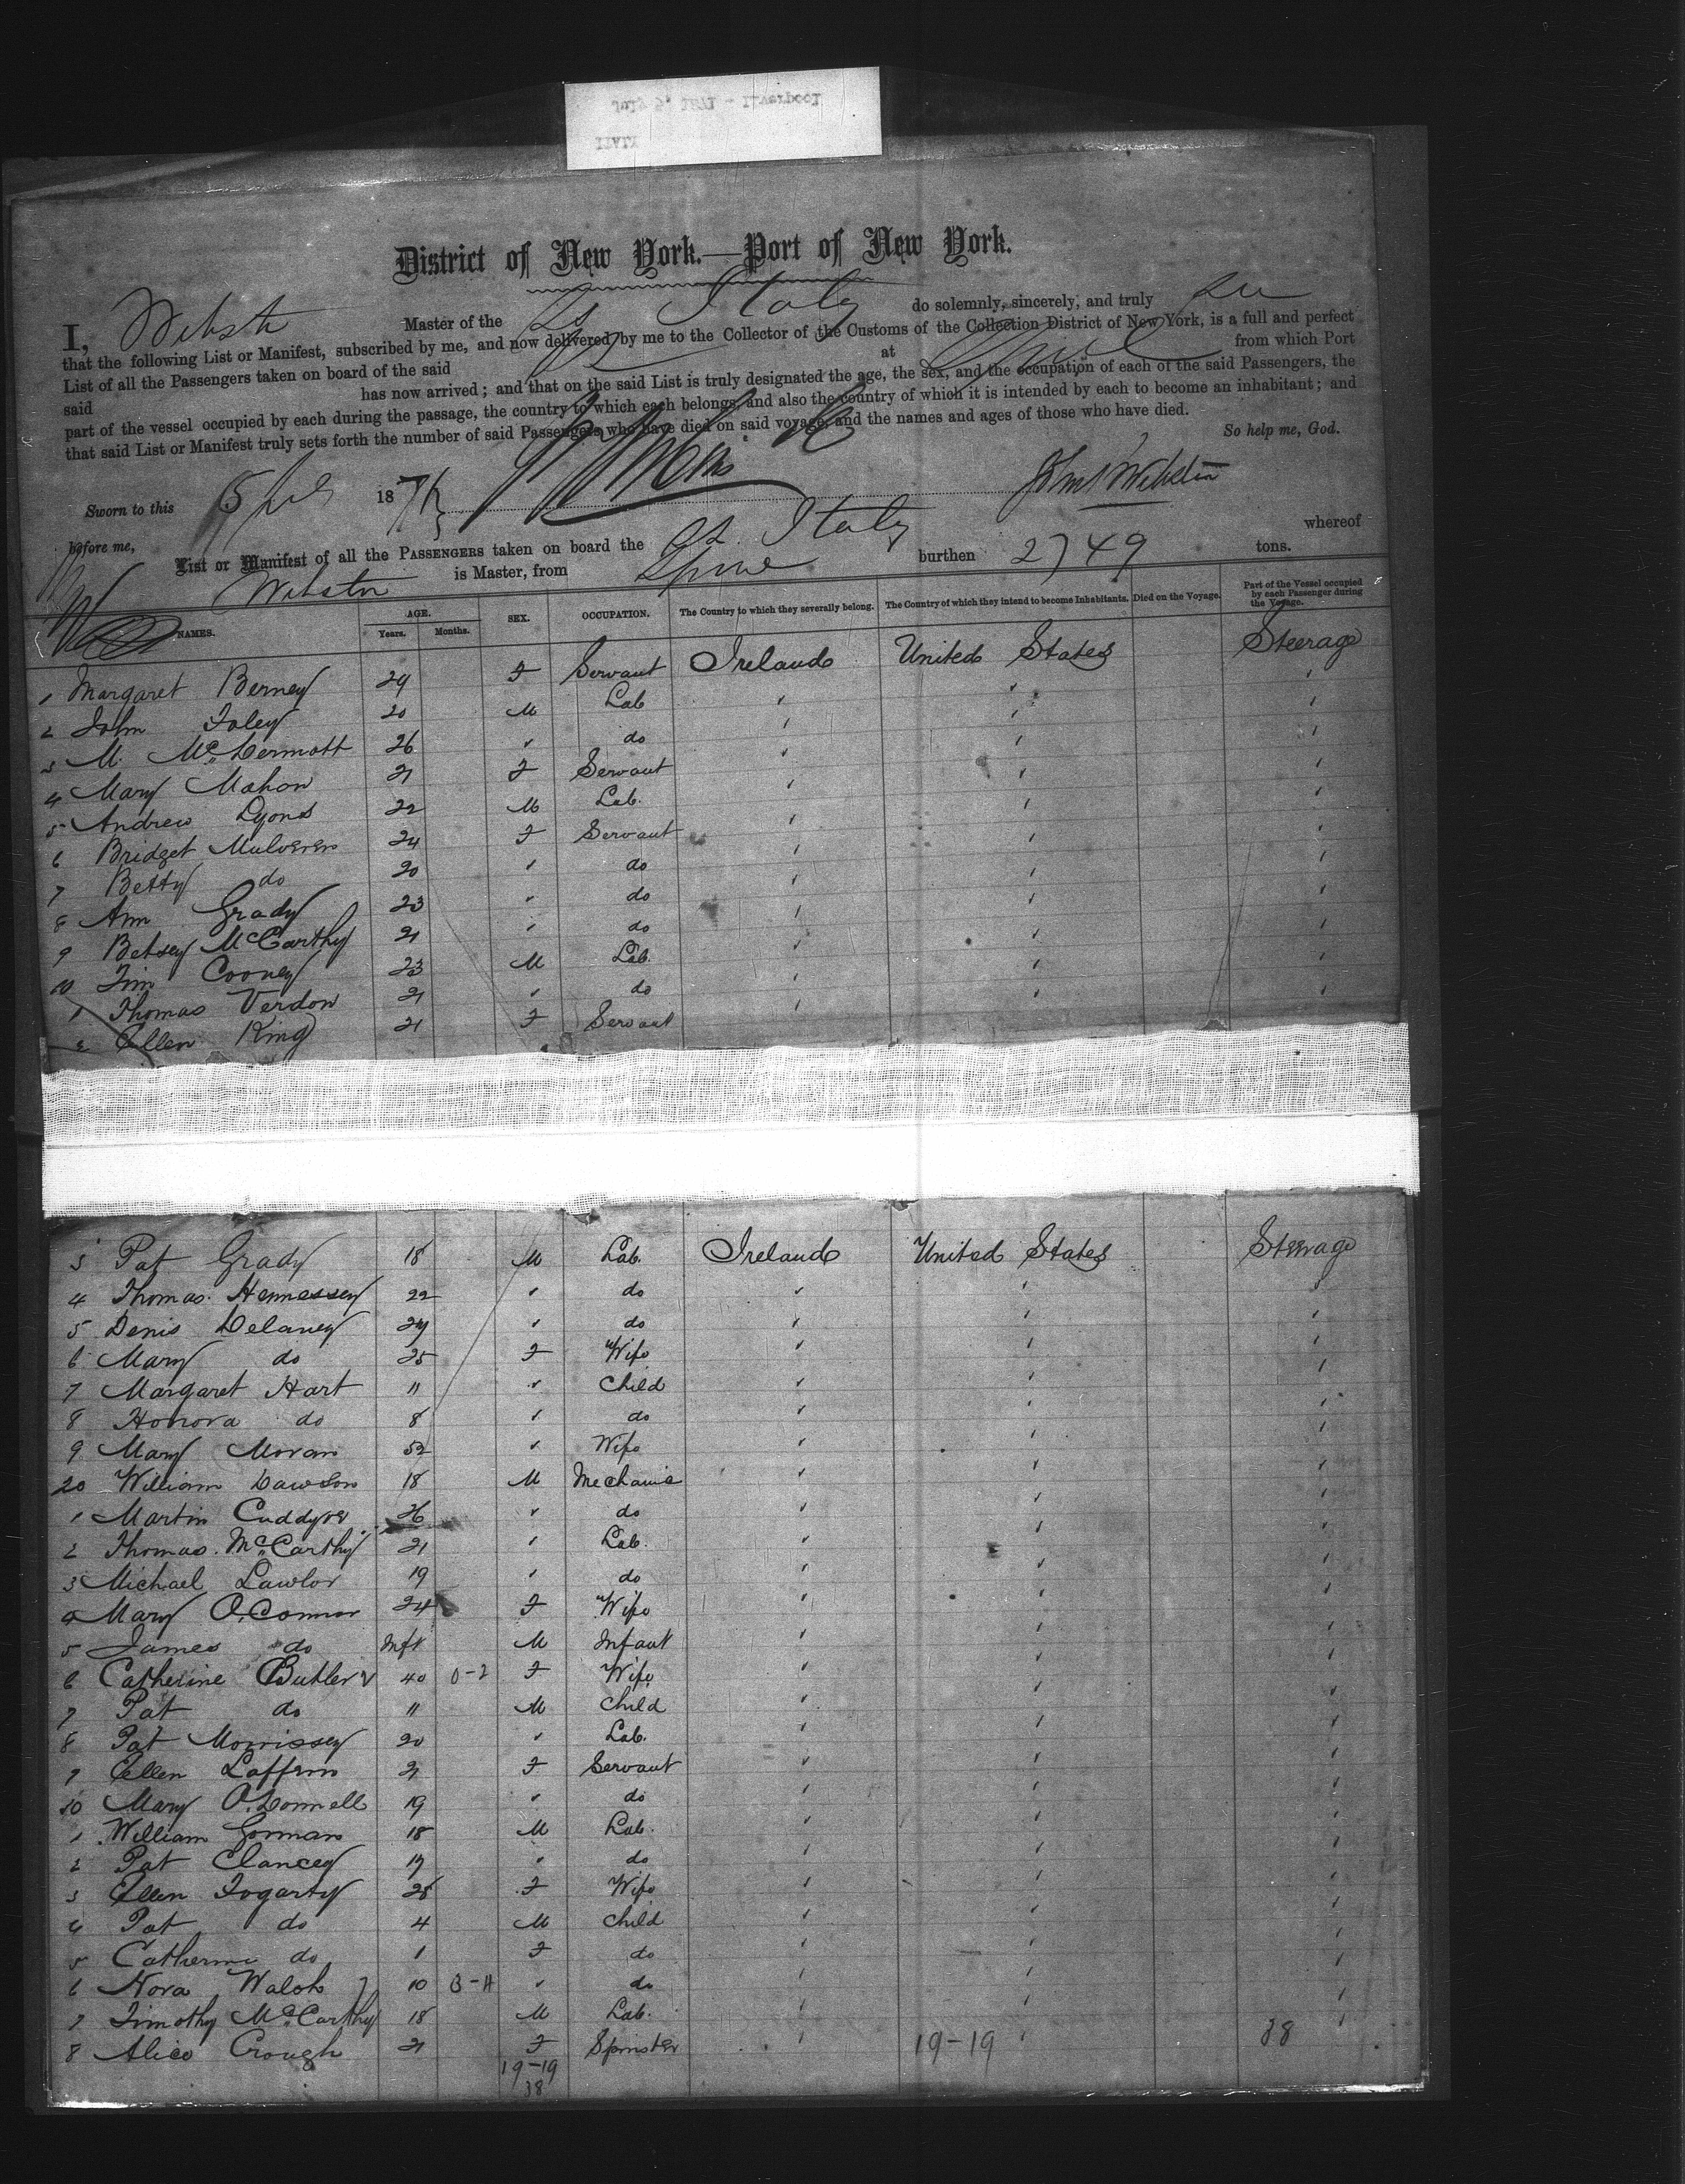 July 5, 1871 - Liverpool
ITALY
District of New York.—Port of New York.
I, Webster Master of the SS Italy do solemnly, sincerely, and truly
that the following List or Manifest, subscribed by me, and now delivered by me to the Collector of the Customs of the Collection District of New York, is a full and perfect
List of all the Passengers taken on board of the said at from which Port
said has now arrived; and that on the said List is truly designated the age, the sex, and the occupation of each of the said Passengers, the
part of the vessel occupied by each during the passage, the country to which each belongs, and also the country of which it is intended by each to become an inhabitant; and
that said List or Manifest truly sets forth the number of said Passengers who have died on said voyage, and the names and ages of those who have died.
So help me, God.
Sworn to this 5 July 1871 Webster
before me,
List or Manifest of all the PASSENGERS taken on board the SS. Italy whereof
Webster is Master, from burthen 2749 tons.
NAMES. AGE. Years. Months. SEX. OCCUPATION. The Country to which they severally belong. The Country of which they intend to become Inhabitants. Died on the Voyage. Part of the Vessel occupied by each Passenger during the Voyage.
1 Margaret Berney 24 F Servant Ireland United States Steerage
2 John Foley 20 M Lab
3 M. McDermott 26 " do
4 Mary Mahon 21 F Servant
5 Andrew Lyons 22 M Lab.
6 Bridget 24 F Servant
7 Betty do 20 " do
8 Ann Grady 23 " do
9 Betsey McCarthy 21 " do
10 Tim Cooney 23 M Lab.
1 Thomas Verdon 21 " do
2 Ellen King 21 F Servant
3 Pat Grady 18 M Lab. Ireland United States Steerage
4 Thomas Hennessey 22 " do
5 Denis Delaney 24 " do
6 Mary do 25 F Wife
7 Margaret Hart 11 " Child
8 Honora do 8 " do
9 Mary Moran 52 " Wife
20 William Dawson 18 M Mechanic
1 Martin 26 " do
2 Thomas McCarthy 21 " Lab.
3 Michael Lawlor 19 " do
4 Mary O'Connor 24 F Wife
5 James do Inft M Infant
6 Catherine Butler 40 0-2 F Wife
7 Pat do 11 M Child
8 Pat Morrissey 20 " Lab.
9 Ellen 21 F Servant
30 Mary O'Donnell 19 " do
1 William Gorman 18 M Lab.
2 Pat Clancey 19 " do
3 Ellen Fogarty 28 F Wife
4 Pat do 4 M Child
5 Catherine do 1 F do
6 Nora Walsh 10 3-H " do
7 Timothy McCarthy 18 M Lab.
8 Alice Crough 21 F Spinster
19-19 19-19 38
38